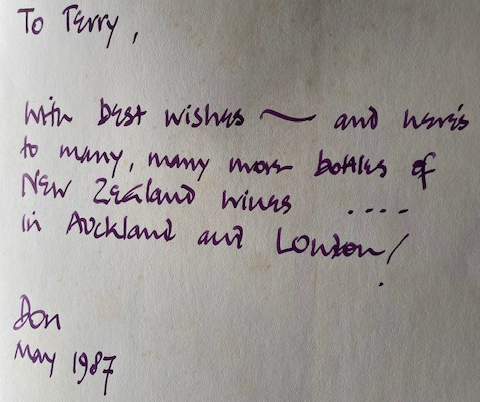 To Terry,
With best wishes ~ and here's
to many, many more bottles of
New Zealand wines ....
in Auckland and London!
Don
May 1987